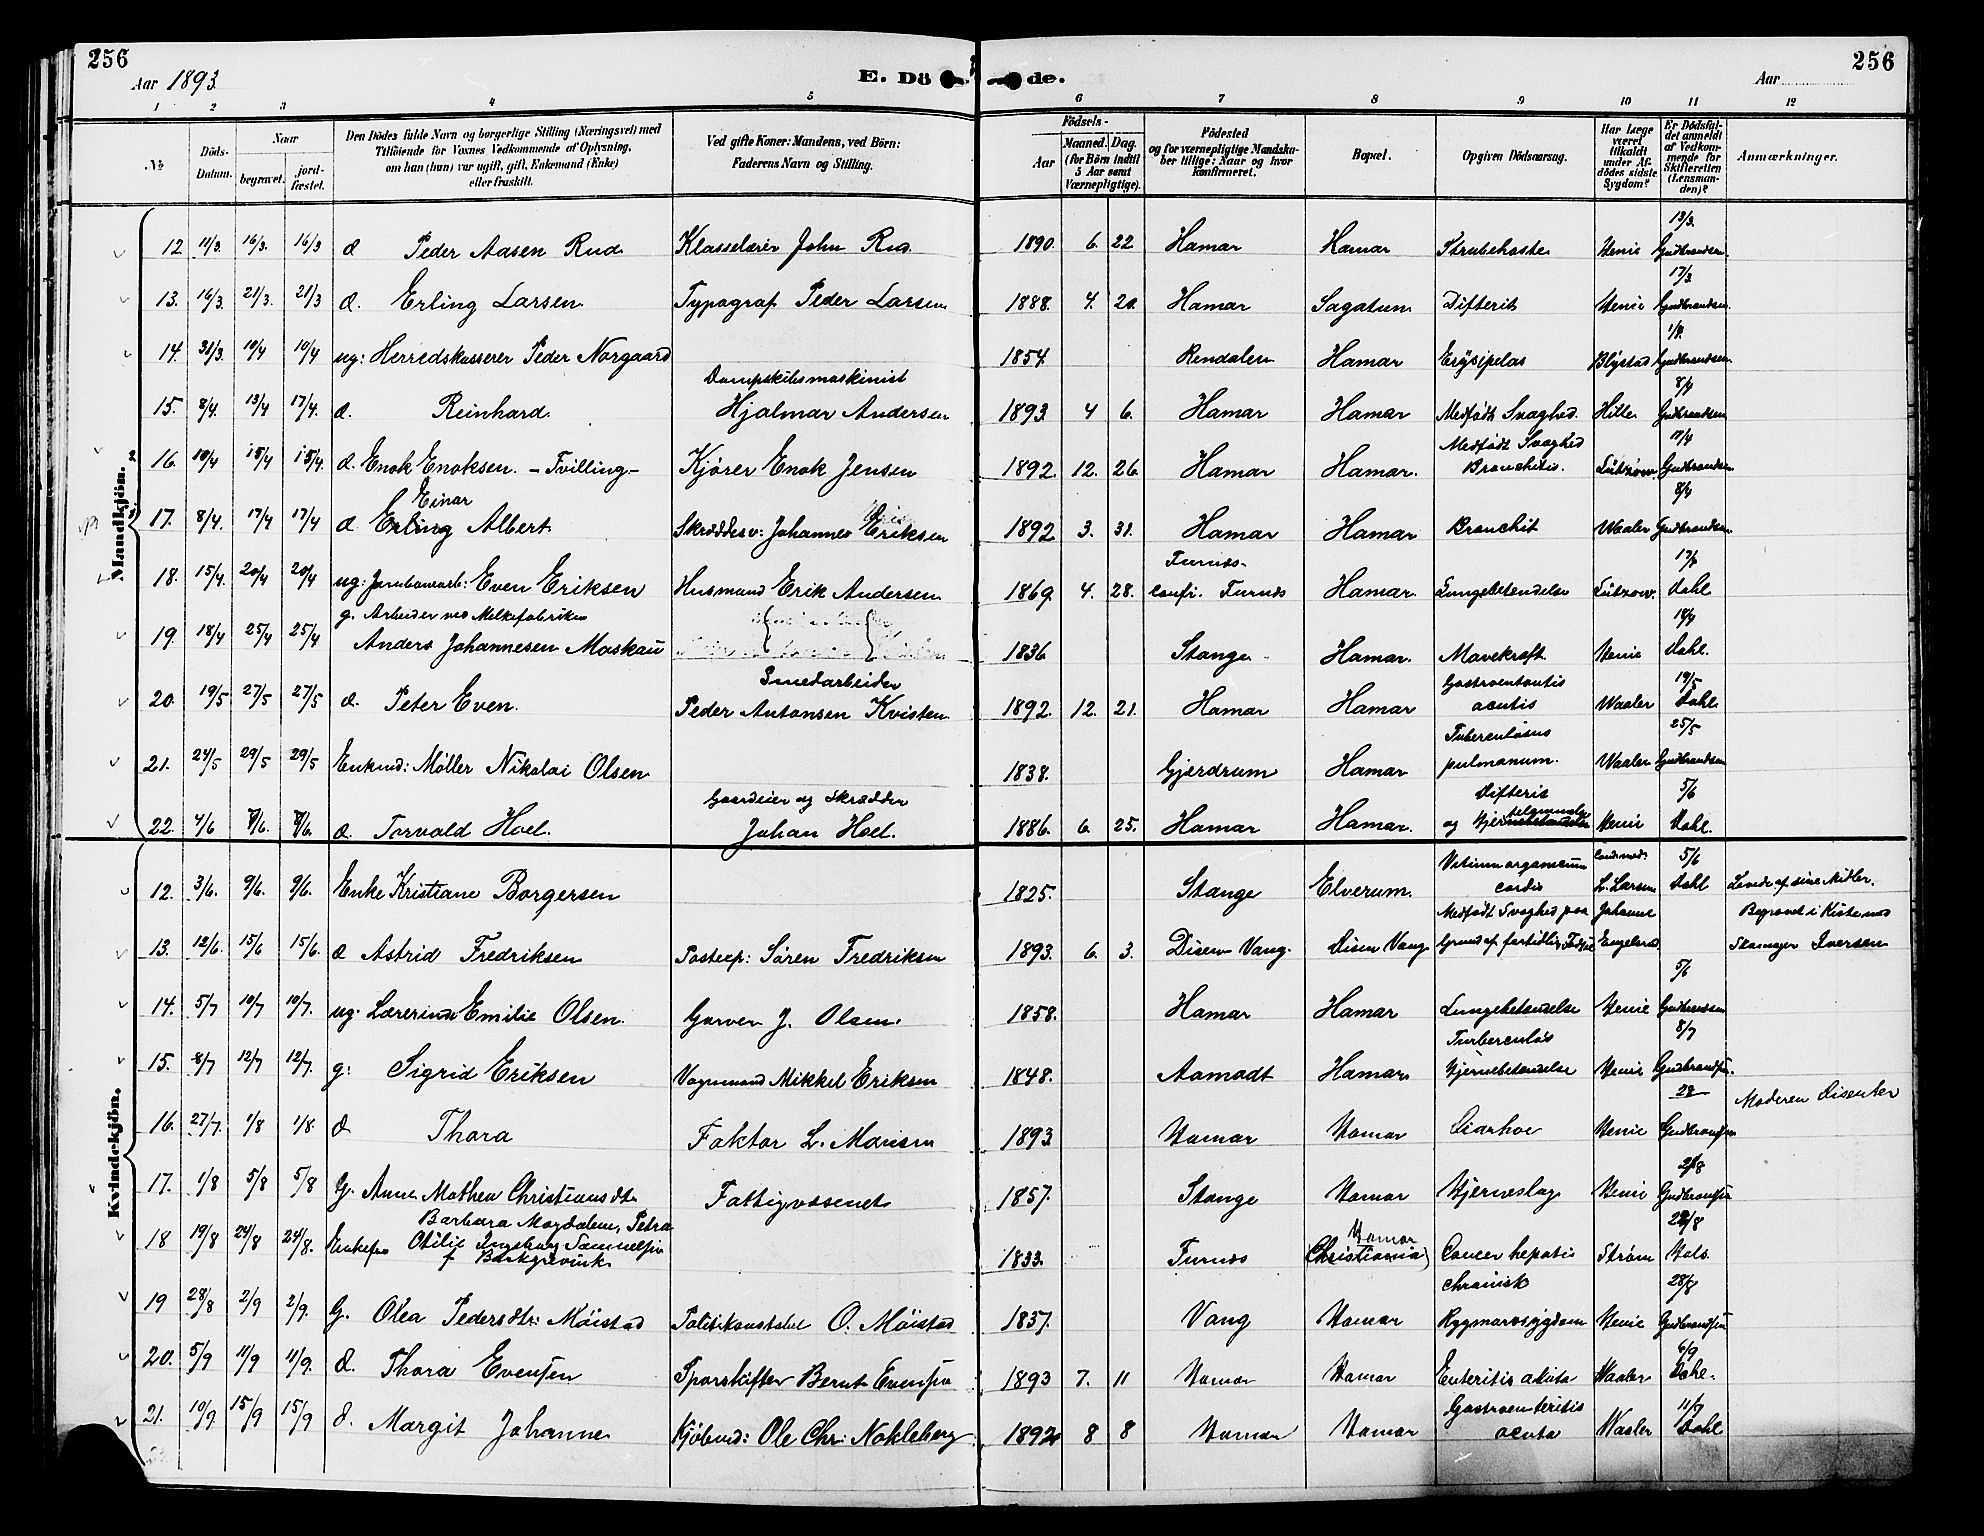 256
256
Aar 1893
E. Dö de.
Aar
1 2 3 4 5 6 7 8 9 10 11 12
No
Döds-Datum.
Naar
begravet.
jord-fæstet.
Den Dödes fulde Navn og borgerlige Stilling (Næringsvei) med
Tilföiende for Voxnes Vedkommende af Oplysning,
om han (hun) var ugift, gift, Enkemand (Enke)
eller fraskilt.
Ved gifte Koner: Mandens, ved Börn:
Faderens Navn og Stilling.
Födsels-
Aar
Maaned. Dag.
(for Börn indtil
5 Aar samt
Værnepligtige).
Födested
og for værnepligtige Mandska-
ber tillige: Naar og hvor
konfirmeret.
Bopæl.
Opgiven Dödsaarsag.
Har Læge
været
tilkaldt
under Af-
dödes sidste
Sygdom?
Er Dödsfal-
det anmeldt
af Vedkom-
mende for
Skifteretten
(Lensman-
den)?
Anmærkninger.
Mandkjön.
12 11/3 16/3. 16/3 d Peder Aasen Rud Klasselærer John Rud 1890. 6. 22 Hamar Hamar Strubehoste Henie 13/3. Gudbrandsen
13. 16/3. 21/3. 21/3 d. Erling Larsen Typograf Peder Larsen 1888. 4. 20. Hamar Sagatun Difterit Henie 17/3 Gudbrandsen
14. 31/3. 10/4 10/4 ug: Herredskasserer Peder Norgaard 1854. Rendalen Hamar Erysipelas Blystad Gudbrandsen
15. 8/4. 13/4 17/4. d. Reinhard Dampskibsmaskinist Hjalmar Andersen 1893 4 6. Hamar Hamar Medfødt Svaghed. Hille 8/4 Gudbrandsen
16. 10/4 15/4 15/4. d. Enok Enoksen. - Tvilling - Kjører Enok Jensen 1892. 12. 26. Hamar Hamar. Medfødt Svaghed Bronchitis. Lützow. 11/4 Gudbrandsen
17. 8/4. 17/4 17/4 d Einar Erling Albert Skræddersv: Johannes Eriksen 1892 3. 31. Hamar Hamar Bronchit Waaler 8/4 Gudbrandsen
18. 15/4. 20/4 20/4 ug: Jernbanearb: Even Eriksen Husmand Erik Andersen 1869. 4. 28. Furnes- Confi. Furnes Hamar Lungebetendelse Lützow. Dahl
19. 18/4 25/4 25/4 g. Arbeider ved Melkefabriken Anders Johannesen Moskau 1836 Stange Hamar. Mavekræft. Henie 18/4 Dahl.
20. 19/5 27/5 27/5 d. Peter Even. Smedarbeider Peder Antonsen Kvisten 1892. 12. 21. Hamar Hamar Gastroenteritis acutis Waaler 19/5 Dahl
21. 24/5 29/5 29/5 Enkmd: Møller Nikolai Olsen 1838. Gjerdrum Hamar Tuberculosus pulmonum. Waaler 25/5 Gudbrandsen
22. 4/6 8/6. 8/6. d Torvald Hoel. Gaardeier og Skrædder Johan Hoel. 1886. 6. 25. Hamar Hamar. Difteris og Henie 5/6 Dahl.
Kvindekjön.
12. 3/6. 9/6. 9/6. Enke Kristiane Borgersen 1825. Stange Elverum. Vitium organicum cordis L. Larsen 5/6 Dahl Levede af sine Midler.
13. 12/6. 15/6 15/6. d Astrid Fredriksen Postexp: Søren Fredriksen 1893. 6. 3. Disen Vang. Disen Vang Medfødt Svaghed paa Grund af fortidlig Fødsel Johanne Engelsrud Begravet i Kiste med Skomager Iversen
14. 5/7 10/7 10/7. ug. Lærerinde Emilie Olsen Garver J. Olsen. 1858. Hamar Hamar Lungebetændelse Henie 5/6 Gudbrandsen
15. 8/7 12/7 12/7. g: Sigrid Eriksen Vognmand Mikkel Eriksen 1848. Aamodt Hamar Turberculøs Hjernebetændelse Henie 8/7 Gudbrandsen
16. 27/7. 1/8 1/8. d Thora Faktor L. 1893 Hamar Hamar Diarhoe Henie 28 Gudbrandsen Moderen Disenter
17. 1/8 5/8 5/8 G. Anne Mathea Christiansdtr Fattigvæsenet 1857. Stange Hamar Hjerneslag Henie 2/8 Gudbrandsen
18 19/8 24/8 24/8. Enkefru Barbara Magdalene Petra Otilie Ingeborg Samuelsen f Barkgrevink 1833. Furnes Hamar (Christiania) Cancer hepatis Strøm 22/8 Hals
19 28/8 2/9 2/9. G. Olea Pedersdtr: Møistad Politikonstabel O. Møistad 1837. Vang Hamar chronisk Rygmarvssygdom Henie 28/8 Gudbrandsen
20. 5/9 11/9 11/9. d. Thora Evensen Sporskifter Bernt Evensen 1893 7. 11 Hamar Hamar Enteritis acuta Waaler 6/9 Dahl.
21. 10/9 15/9 15/9 d. Margit Johanne Kjøbmd: Ole Chr: Nokleberg 1892 8 8 Hamar Hamar Gastroenteritis acuta Waaler 11/9 Dahl